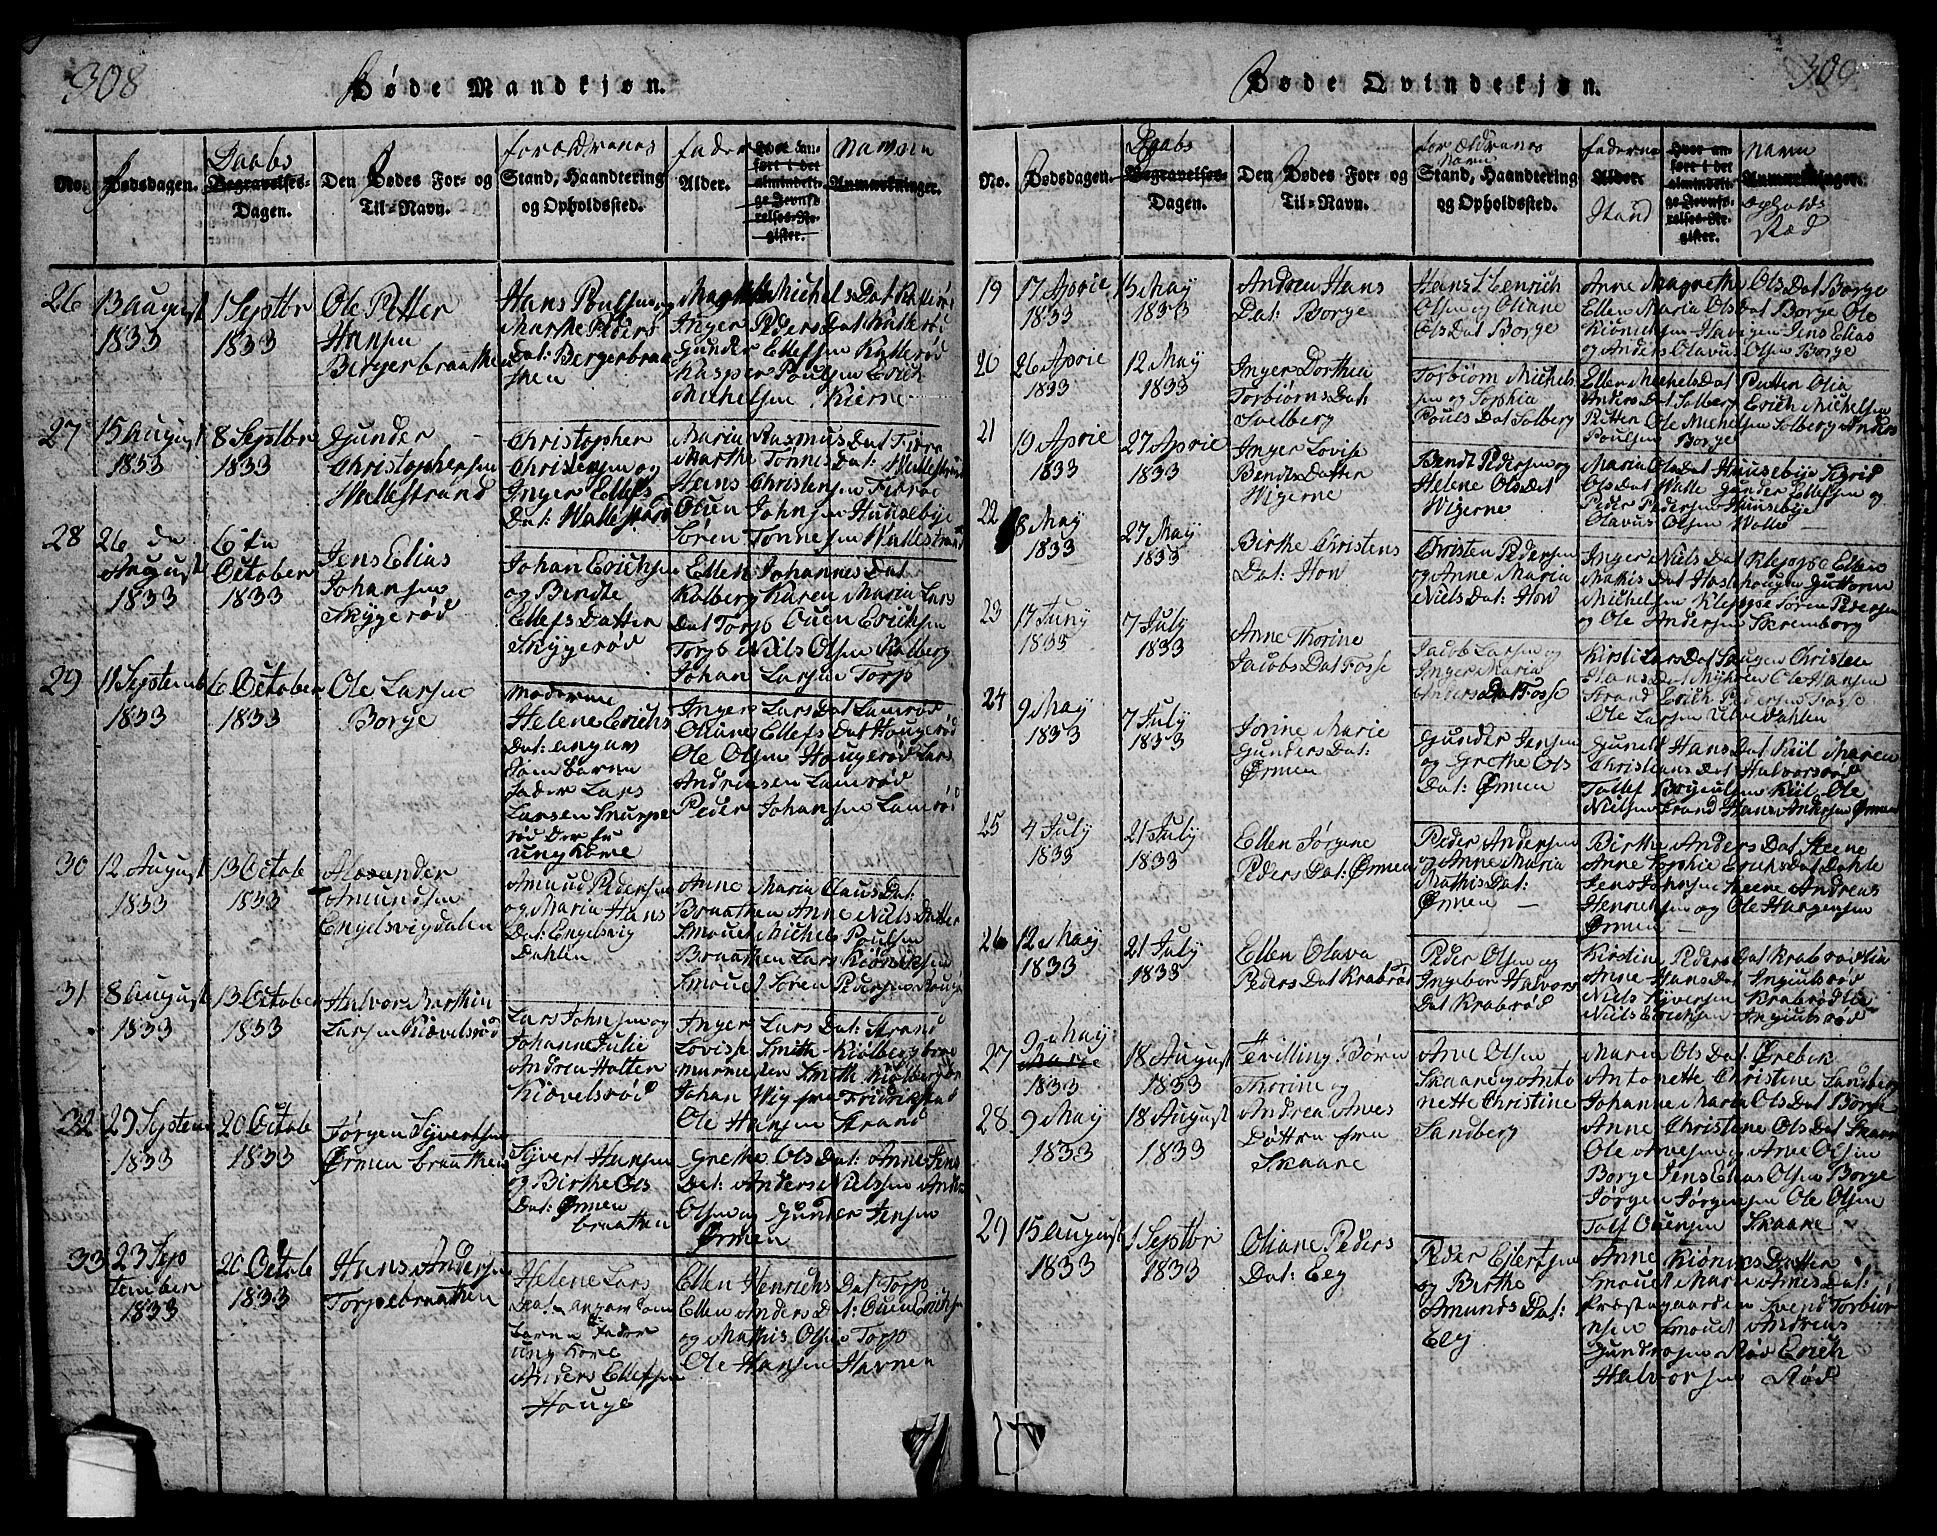 308
Døde Mandkjøn.
No.
Dødsdagen.
Daabs
Begravelses-
Dagen.
Den Dødes For- og
Til-Navn.
forældranes
Stand, Haandtering
og Opholdssted.
fader
Alder.
Hvor an-
ført i det
almindeli-
ge Jevnfø-
relses-Re-
gister.
Anmærkninger.
26
13 august
1833
1 Septbr
1833
Ole Petter
Hansen
Bergerbraathen
Hans Poulsen og
Marthe Peders
Dat: Bergerbraa
then
Michels Dat
Inger Peders Dat
Gunder Ellefsen
Kasper Poulsen Erich
Michelsen Kierne
27
15 august
1833
8 Septbr
1833
Gunder
Christophersen
Wallestrand
Christopher
Christensen og
Inger Ellefs
Dat: Wallestrand
Maria Rasmus Dat
Marthe Tønnes Dat: Wallestrand
Hans Christensen
Ouen Johnsen Huusebye
Søren Tønnesen Wallestrand
28
26 de
August
1833
6 te
October
1833
Jens Elias
Johansen
Skygerød
Johan Erichsen
og Bendte
Ellefs Datter
Skyggerød
Ellen Johannes Dat
Kolberg Karen Maria Lars
Dat Torp Ouen Erichsen
Torp Niels Olsen Kolberg
Johan Larsen Torp
29
11 Septemb
1833
6 October
1833
Ole Larsen
Borge
Moderen
Helene Erichs
Dat: angav
som barne
fader Lars
Larsen Snippe
rød der er
ung Karl
Inger Lars Dat Lamrød
Oliane Ellefs Dat Hougerød
Ole Olsen Hougerød Lars
Andreasen Lamrød
Peder Johansen Lamrød
30
12 August
1833
13 Octob
1833
Alexander
Amundsen
Engelsvigdalen
Amund Pedersen
og Maria Hans
Dat: Engelsvig
Dahlen
Anne Maria Claus Dat:
Braathen Anne Niels Datter
Smouet Michel Poulsen
Braathen Lars Kiøniksen
Smouet Søren Pedersen
31
8 august
1833
13 October
1833
Halvor Marthin
Larsen Kiøvelsrød
Lars Johnsen og
Johanne Julie
Andrea Holter
Kiøvelsrød
Inger Lars Dat: Strand
Lovise Smith Kiølberg
Smith Kiølberg
Johan Wig fra Fridrikstad
Ole Hansen Strand
32
29 Septem
1833
20 Octob
1833
Jørgen Syvertsen
Ørmen braathen
Syvert Hansen
og Birthe Ols
Dat: Ørmen
braathen
Grethe Ols Dat: Anne Jens
Dat: Anders Nielsen
Olsen og Gunder Jensen
Ørmen
33
23 Sep
tember
1833
20 Octob
1833
Hans Andersen
Torpebraathen
Helene Lars
Dat: angav som
Barne Fader
ung Karl
Anders Ellefsen
Houge
Ellen Henrichs Dat Torp
Ellen Anders Dat: Ouen Erichsen
og Mathis Olsen Torp
Ole Hansen Havnen
309
Døde Qvindekjøn.
No.
Dødsdagen.
Daabs
Begravelses-
Dagen.
Den Dødes For- og
Til-Navn.
forældranes
Navn
Stand, Haandtering
og Opholdssted.
fadernes
Alder.
Stand
Hvor an-
ført i det
almindeli-
ge Jevnfø-
relses-Re-
gister.
Navn
Anmærkninger.
opholds
Stæd
19
17 Aprie
1833
15 May
1833
Andrea Hans
Dat: Borge
Hans Henrich
Olsen og Oliane
Ols Dat Borge
Anne Magrethe Ols Dat Borge
Ellen Maria Ols Dat Borge Ole
Kiøniksen Havigen Jens Elias
og Anders Olavus Olsen Borge
20
26 Aprie
1833
12 May
1833
Inger Dorthea
Torbiørns Dat:
Soelberg
Torbiørn Michels
en og Sophia
Pouls Dat Solberg
Ellen Michels Dat Putten Olia
Anders Dat Solberg Erich Michelsen
Putten Ole Michelsen Solberg Anders
Poulsen Borge
21
19 Aprie
1833
27 Aprie
1833
Inger Lovise
Bendts Datter
Wigerne
Bendt Pedersen og
Helene Ols Dat
Wigerne
Maria Ols Dat Huusebye Sigrid
Ols Dat Walle Gunder Ellefsen og
Peder Pedersen Huusebye
Olavus Olsen Walle
22
8 May
1833
27 May
1833
Birthe Christens
Dat: How
Christen Pedersen
og Anne Maria
Niels Dat: How
Inger Niels Dat Kleppe Ellen
Mathis Dat Guttorm
Michelsen Kleppe Søren Pedersen
og Ole Andersen Skremborg
23
17 Juny
1833
7 July
1833
Anne Thorine
Jacobs Dat Fosse
Jacob Larsen og
Inger Maria
Anders Dat Fosse
Kirsti Lars Dat Haugen Christen
Hans Dat Ole Hansen
Strand Erich Pedersen Fosse
Ole Larsen Ulvedahlen
24
9 May
1833
7 July
1833
Jorine Marie
Gunders Dat:
Ørmen
Gunder Jensen
og Grethe Ols
Dat: Ørmen
Gunild Hans Dat Kiil Maren
Christians Dat Halvorsrød
Tollef Kiil Ole
Nielsen Strand Hans Andersen Ørmen
25
4 July
1833
21 July
1833
Ellen Jørgene
Peders Dat: Ørmen
Peder Andersen
og Anne Maria
Mathis Dat:
Ørmen
Birthe Anders Dat Steene
Anne Sophie Erichs Dat Dahle
Jens Johnsen Steene Andreas
Henrichsen og Ole Hargensen
Ørmen
26
12 May
1833
21 July
1833
Ellen Olava
Peders Dat Krabrød
Peder Olsen og
Ingebor Halvors
Dat Krabrød
Kirstine Peders Dat Krabrød
Anne Hans Dat Ingiulsrød
Niels Syversen Krabrød Ole
Niels Erichsen Ingiulsrød
27
9 May
1833
18 August
1833
28
9 May
1833
18 August
1833
Tvilling Børn
Thorine og
Andrea Arves
Døttre fra
Skaare
Arve Olsen
Skaare og Anto
nette Christine
Sandberg
Maria Ols Dat: Ørebek
Antonette Christine Sandberg
Johanne Maria Ols Dat Borge
Anne Christine Ols Dat Skaare
Ole Arvesen og Arve Olsen
Borge Jens Elias Olsen Borge
Jørgen Jørgensen Ole Olsen
Tolf Ouensen Skaare
29
15 August
1833
1 Septbr
1833
Oliane Peders
Dat: Eeg
Peder Eilertsen
og Birthe
Amunds Dat:
Eeg
Anne Kiøniks Datter
Smouet Maria Arnes Dat:
Præstegaarden Svend Torbiør
nsen Smouet Andreas
Gundrosen Rød Erich
Halvorsen Rød